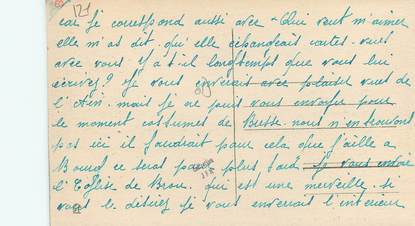 121
car je correspond aussi avec "Qui veut m'aimer
elle m'as dit, qu'elle échangeait cartes-vues
avec vous. Y a t'il longtemps que vous lui
écrivez? Je vous enverais avec plaisir vues de
l'Ain. mais je ne puis vous envoyer pour
le moment costumes de Bresse. nous n'en trouvont
pas ici il faudrait pour cela que j'aille a
Bourg ce sera pour plus tard. Si vous envoie
l'Eglise de Brou. qui est une merveille. si
vous le désirez je vous enverrai l'intérieur